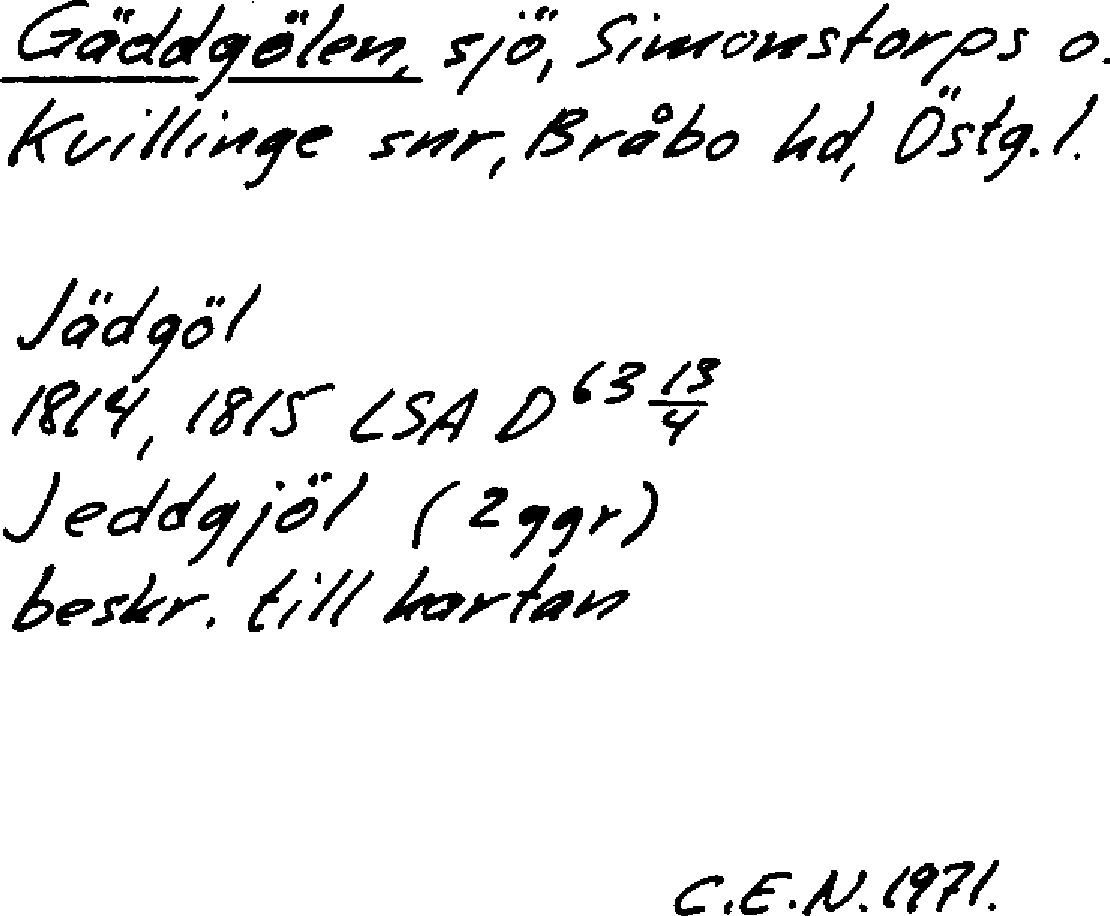 Gäddgölen, sjö, Simonstorps o.
Kvillinge snr, Bråbo hd, Östg.l.
Jädgöl
1814, 1815 LSA D 63 13/4
Jeddgjöl (2 ggr)
beskr. till kartan
C.E.N. 1971.